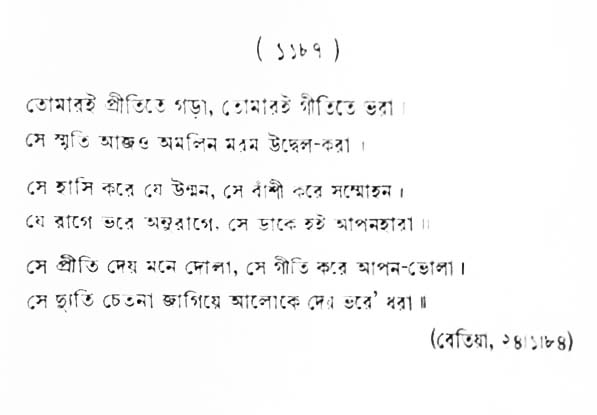 ( ১১৮৭ )
তোমারই প্রীতিতে গড়া, তোমারই গীতিতে ভরা ।
সে স্মৃতি আজও অমলিন মরম উদ্বেল-করা ।
সে হাসি করে যে উন্মন, সে বাঁশী করে সম্মোহন ।
যে রাগে ভরে অনুরাগে, সে ডাকে হই আপনহারা ॥
সে প্রীতি দেয় মনে দোলা, সে গীতি করে আপন-ভোলা ।
সে দ্যুতি চেতনা জাগিয়ে আলোকে দেয় ভরে' ধরা ॥
(বেতিয়া, ২৪।১।৮৪)